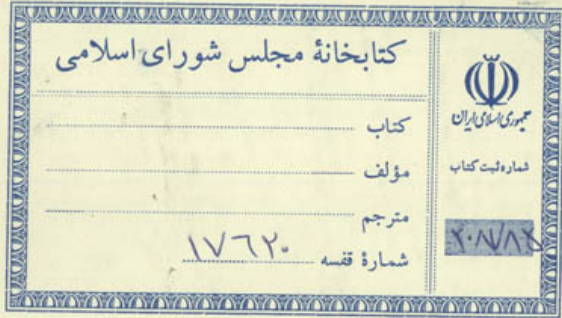 کتابخانهٔ مجلس شورای اسلامی
کتاب
مؤلف
مترجم
شمارهٔ قفسه ۱۷۶۲۰
جمهوری اسلامی ایران
شماره ثبت کتاب